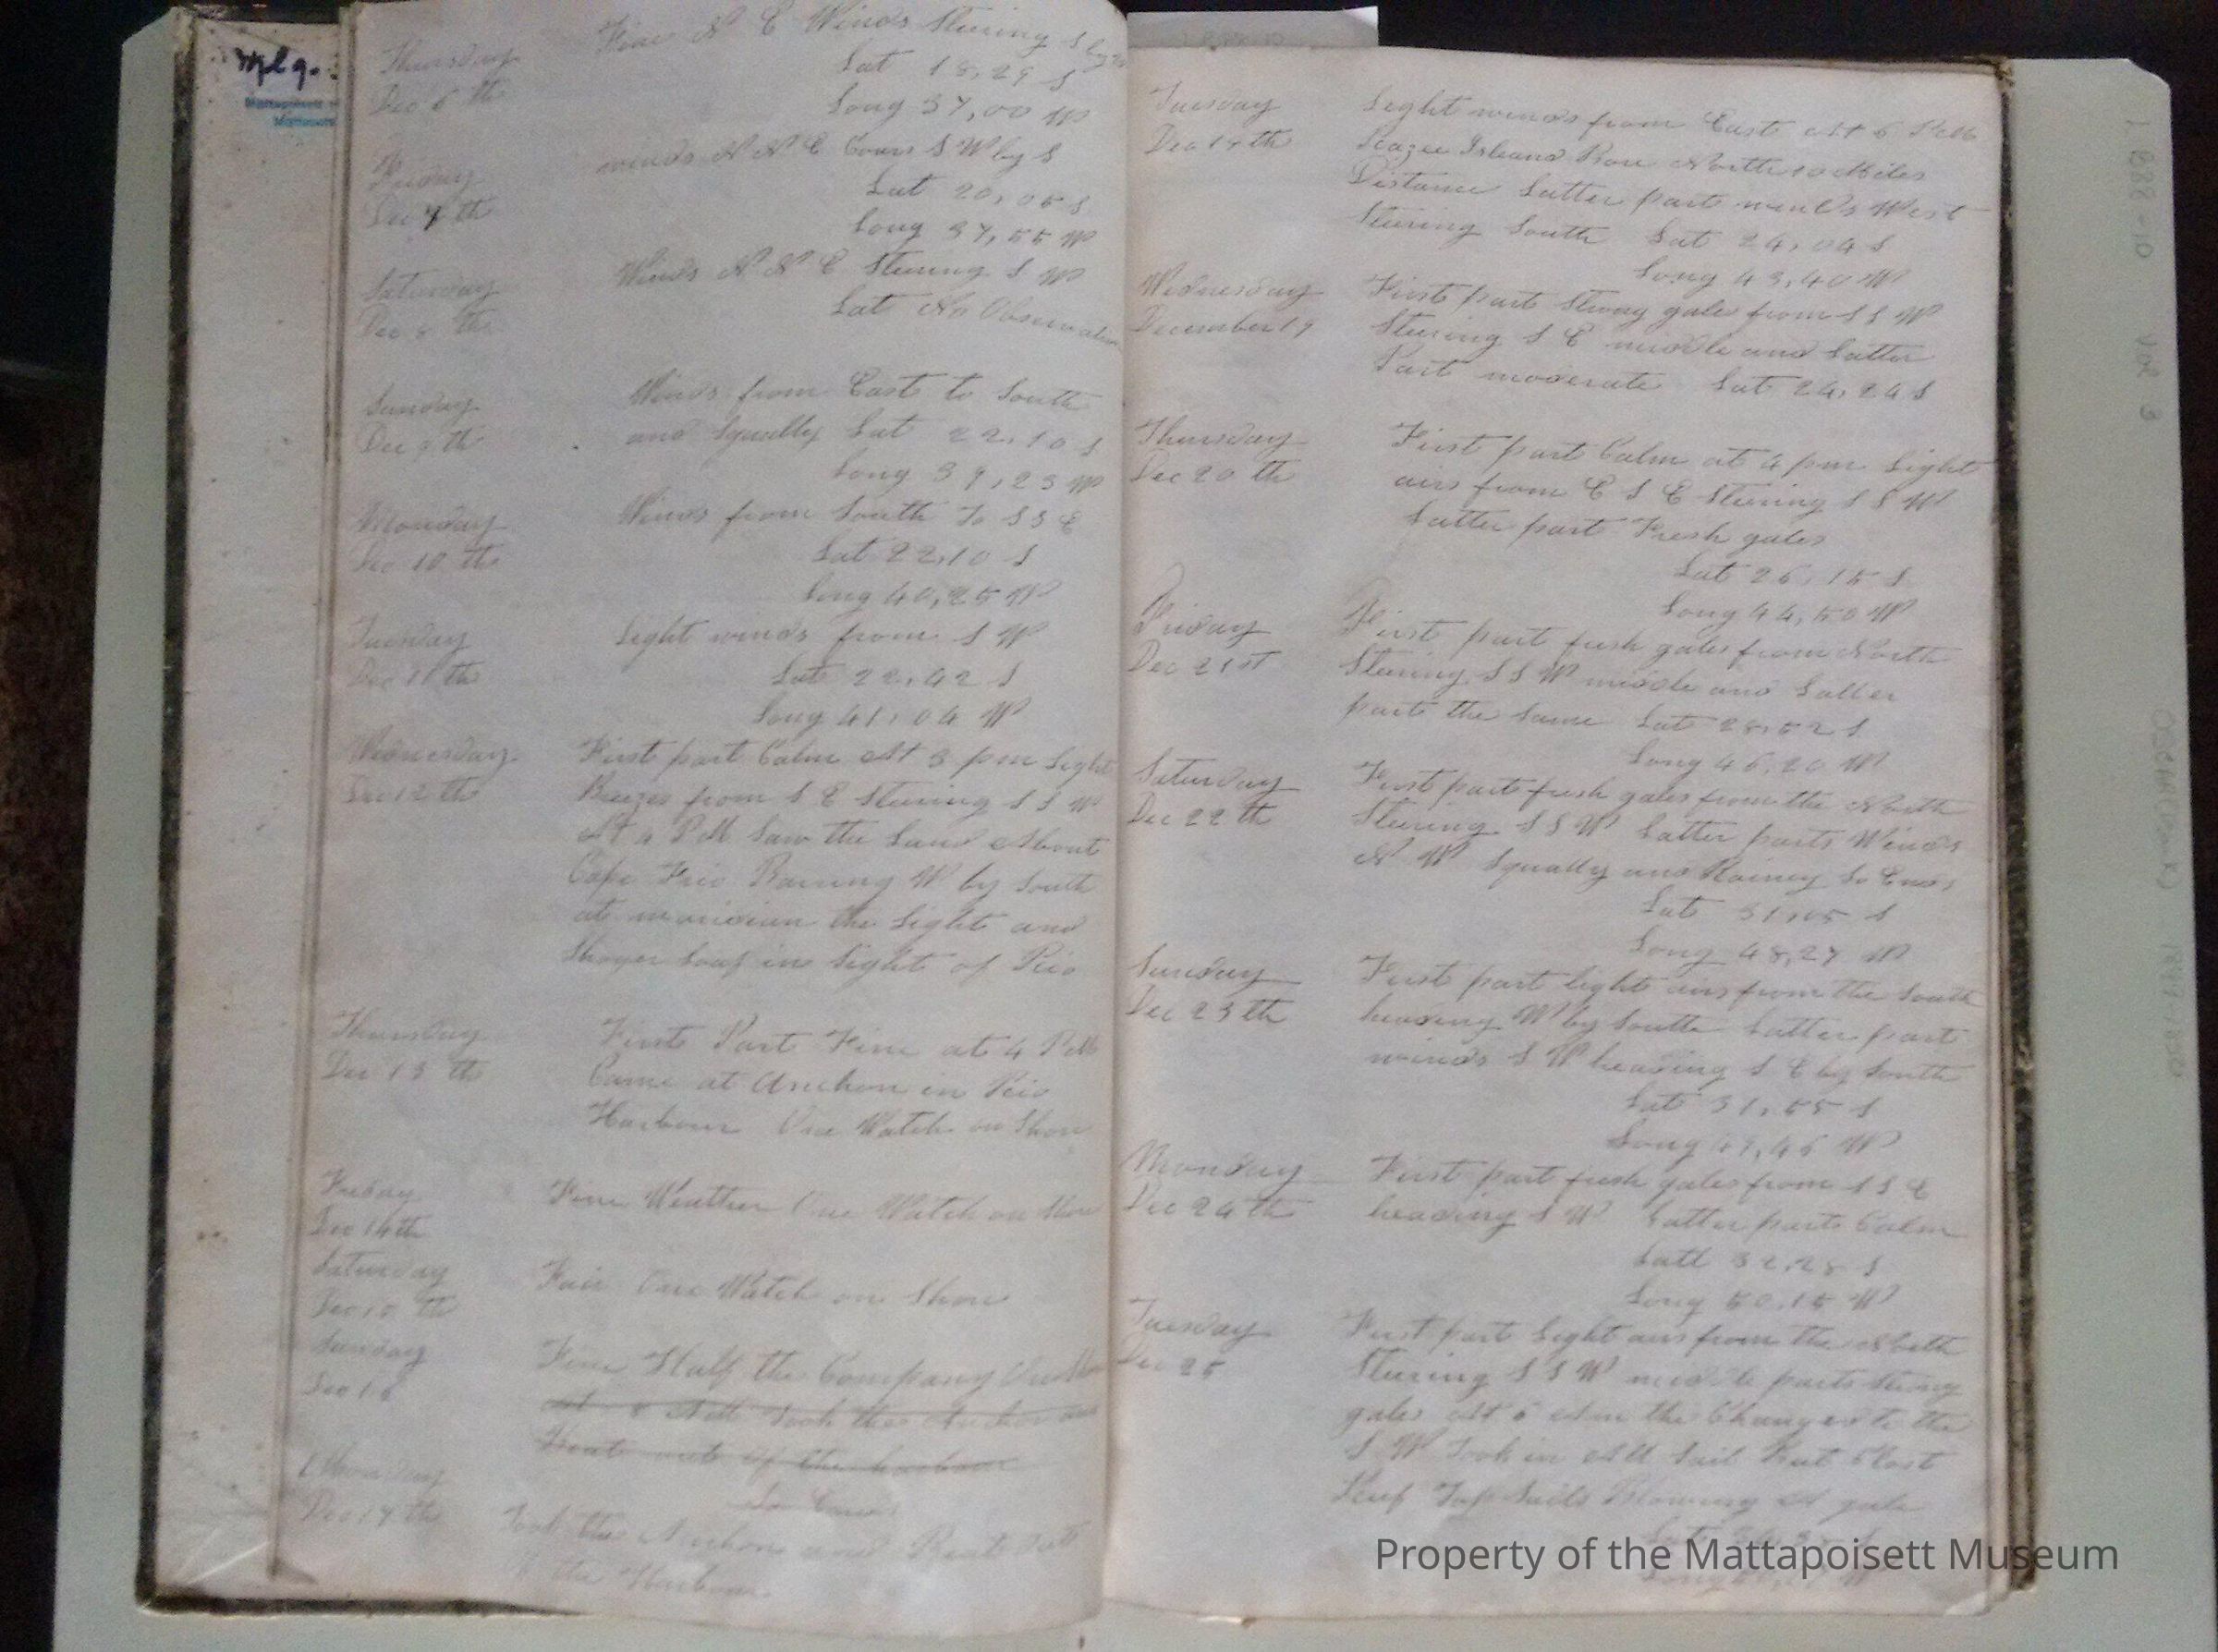 Wlg.
Mattapoisett
Thursday Fine N E Winds Steering S by
Dec 6 th Lat 18,29 S
Long 37,00 W
Friday winds N N E Cours S W by S
Dec 7 th Lat 20,05 S
Long 37,55 W
Saturday Winds N N E Steering S W
Dec 8 th Lat No Observation
Sunday Winds from East to South
Dec 9 th and Squally Lat 22,10 S
Long 39,23 W
Monday Winds from South To S S E
Dec 10 th Lat 22,10 S
Long 40,25 W
Tuesday Light winds from S W
Dec 11 th Lat 22,42 S
Long 41,04 W
Wednesday First part Calm At 3 pm Light
Dec 12 th Breezes from S E Steering S S W
At 4 P M Saw the Land About
Cape Frio Baring W by South
at meridian the Light and
Shoger Loaf in Sight of Rio
Thursday First Part Fine at 4 P M
Dec 13 th Came at Anchor in Rio
Harbour One Watch on Shore
Friday Fine Weather One Watch on Shore
Dec 14th
Saturday Fair One Watch on Shore
Dec 15 th
Sunday Fine Half the Company On Shore
Dec 16 At 8 AM Took the Anchor and
Beat out of the harbour
So Ends
Monday
Dec 17 th Took the Anchor and Beat Out
of the Harbour
Tuesday Light winds from East At 6 P M
Dec 18th Island Bore North 10 Miles
Distance Latter part winds West
Steering South Lat 24,04 S
Long 43,40 W
Wednesday First part Strong gales from S S W
December 19 Steering S E middle and Latter
Part moderate Lat 24,24 S
Thursday First part Calm at 4 pm Light
Dec 20 th airs from E S E Steering S S W
Latter part Fresh gales
Lat 26,15 S
Long 44,50 W
Friday First part fresh gales from North
Dec 21st Steering S S W middle and Latter
parts the Same Lat 28,52 S
Long 46,20 W
Saturday First part fresh gales from the North
Dec 22 th Steering S S W Latter parts Winds
N W Squally and Rainey So Ends
Lat 31,05 S
Long 48,27 W
Sunday First part light airs from the South
Dec 23 th heading W by South Latter part
winds S W heading S E by South
Lat 31,55 S
Long 49,46 W
Monday First part fresh gales from S S E
Dec 24 th heading S W Latter parts Calm
Latt 32,28 S
Long 50,15 W
Tuesday First part Light airs from the North
Dec 25 Steering S S W middle parts Strong
gales At 6 Am the Changed to the
S W Took in All Sail But Clost
Reef Top Sails Blowing A gale
Property of the Mattapoisett Museum